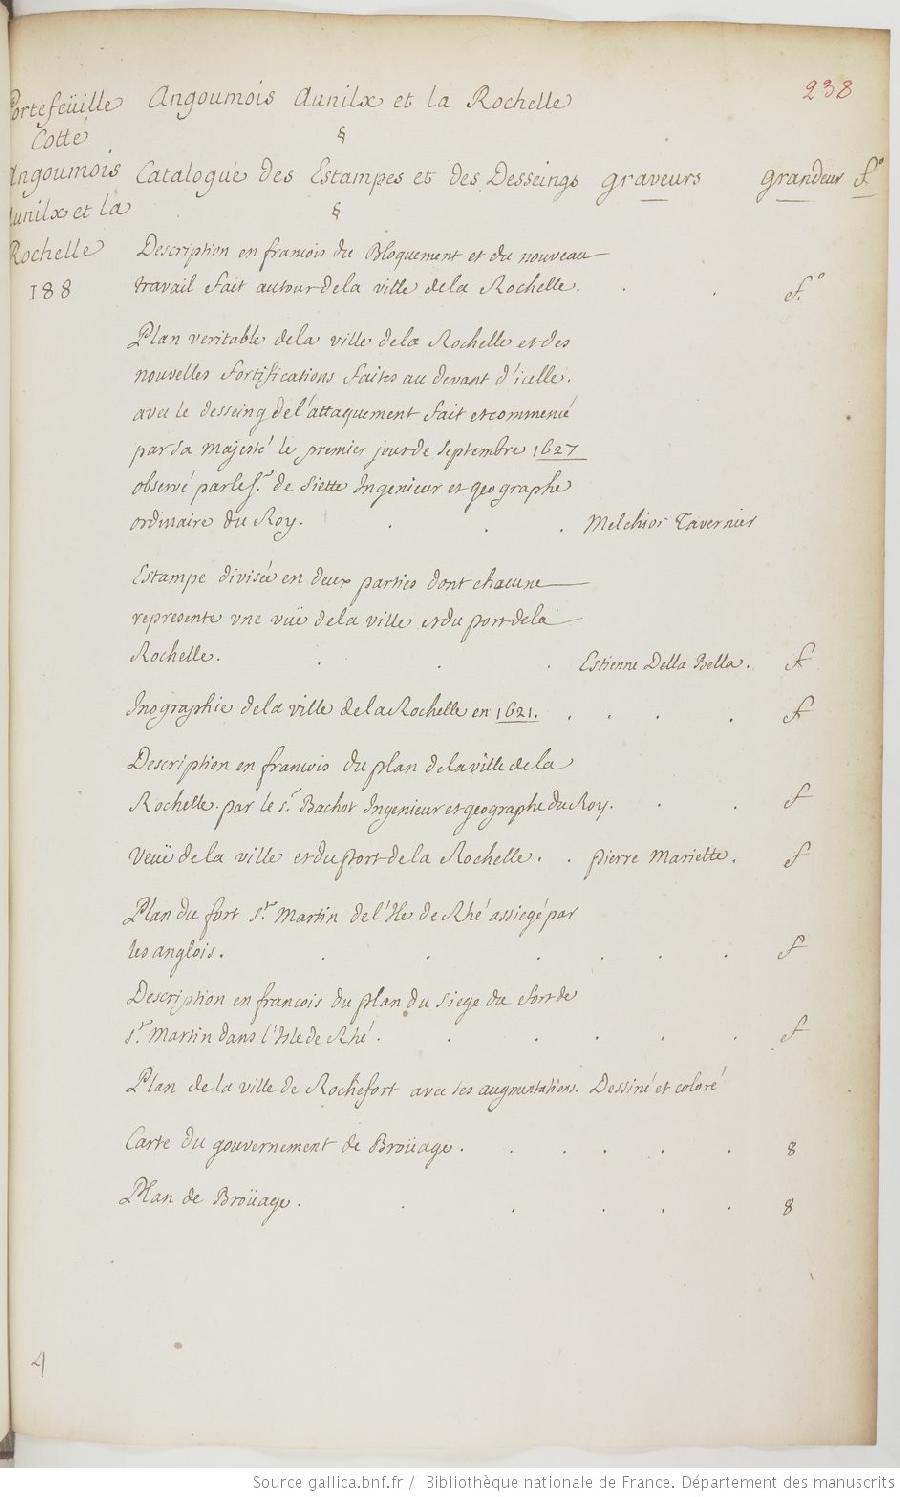 238
Portefeüille
Cotté
Angoumois
Aunilx et la
Rochelle
188
Angoumois Aunilx et la Rochelle
§
Catalogue des Estampes et des Desseings graveurs grandeur f.º
§
Description en francois du Bloquement et du nouveau
travail fait autour de la ville de la Rochelle. . . f.º
Plan veritable de la ville de la Rochelle et des
nouvelles fortifications faites au devant d'icelle.
avec le desseing de l'attaquement fait et commencé
par sa Majesté le premier jour de Septembre 1627
observé par le Sr. de Siette Ingenieur et geographe
ordinaire du Roy. . . . Melchior Tavernier
Estampe divisée en deux parties dont chacune
represente une vüe de la ville et du port de la
Rochelle. . . . Estienne Della Bella. f
Inographie de la ville de la Rochelle en 1621. . . . . f
Description en francois du plan de la ville de la
Rochelle. par le Sr. Bachot Ingenieur et geographe du Roy. . . f
Veuë de la ville et du port de la Rochelle. . pierre Mariette. f
Plan du fort St. Martin de l'Ile de Rhé assiegé par
les anglois. . . . . . . f
Description en francois du plan du siege du fort de
St. Martin dans l'Isle de Rhé. . . . . . f
Plan de la ville de Rochefort avec ses augmentations. Dessiné et coloré
Carte du gouvernement de Broüage. . . . . . 8
Plan de Broüage. . . . . . 8
4
Source gallica.bnf.fr / Bibliothèque nationale de France. Département des manuscrits